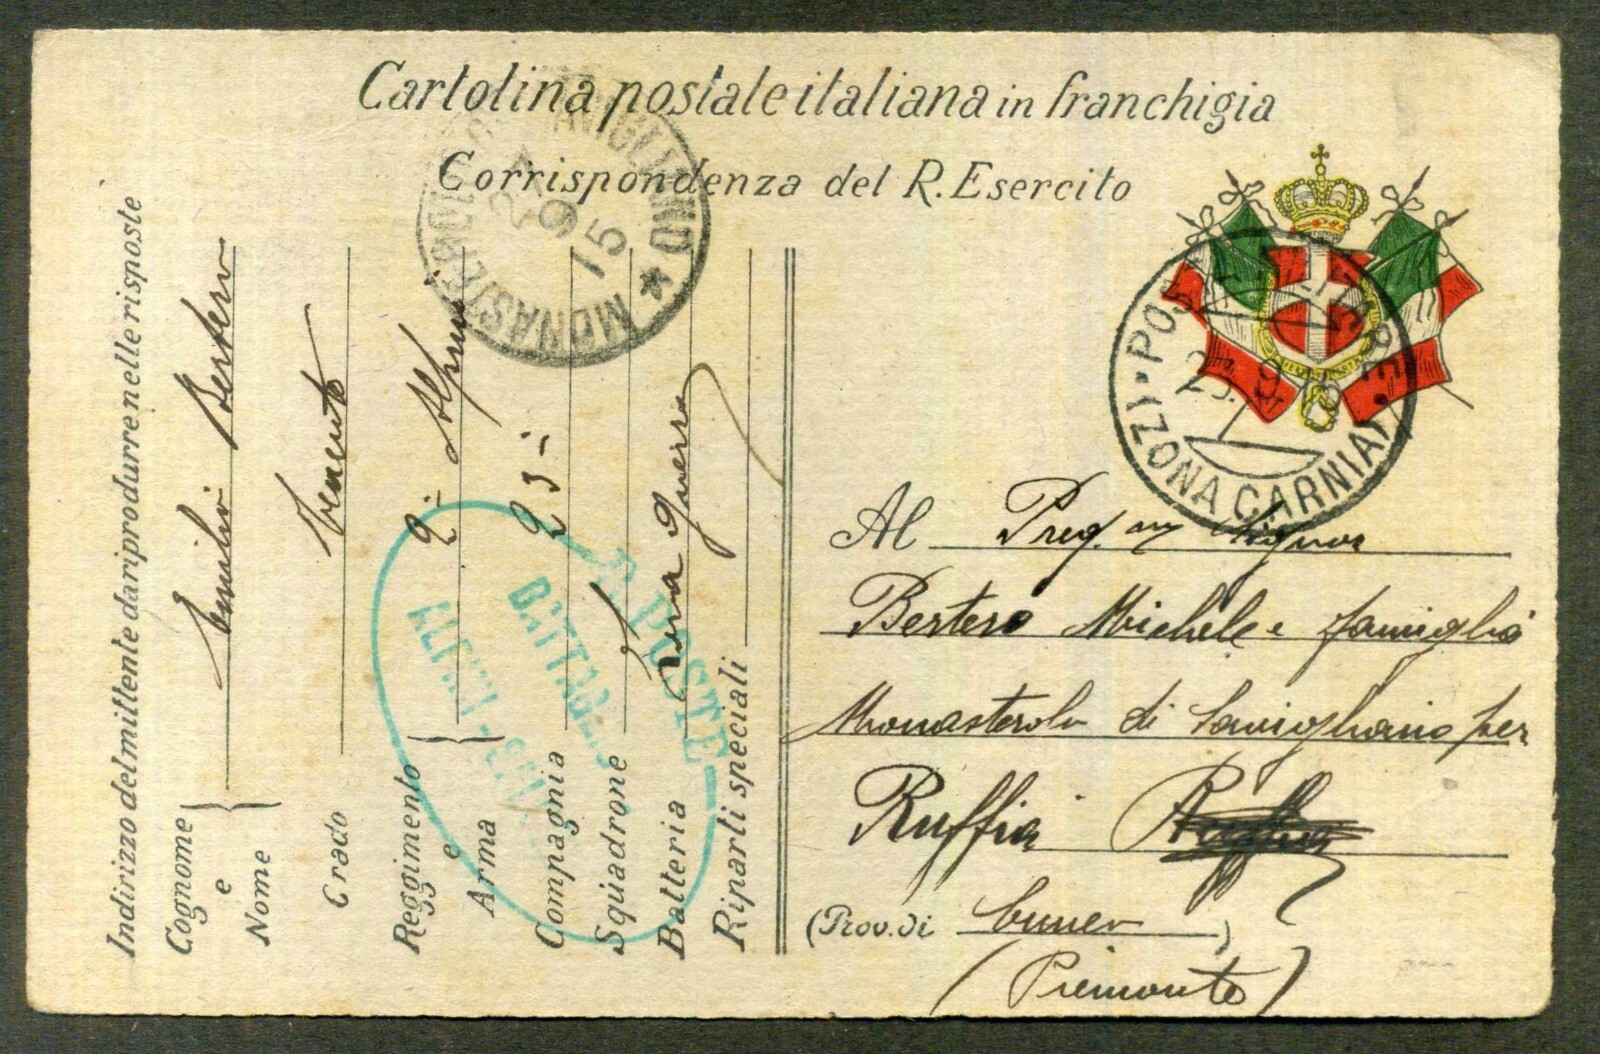 Cartolina postale italiana in franchigia
Corrispondenza del R. Esercito
Indirizzo del mittente da riprodurre nelle risposte
Cognome e Nome Emilio Bertero
Grado
Reggimento e Arma 2- Alpini
Compagnia 23-
Squadrone
Batteria Zona Guerra
Riparti speciali
MONASTEROLO SAVIGLIANO
2 9 15
POSTA MILITARE
ZONA CARNIA
POSTE
BATTAG
ALPINI
Al Preg.
Signor
Bertero Michele e famiglia
Monasterolo di Savigliano per
Ruffia
(Prov. di Cuneo)
(Piemonte)